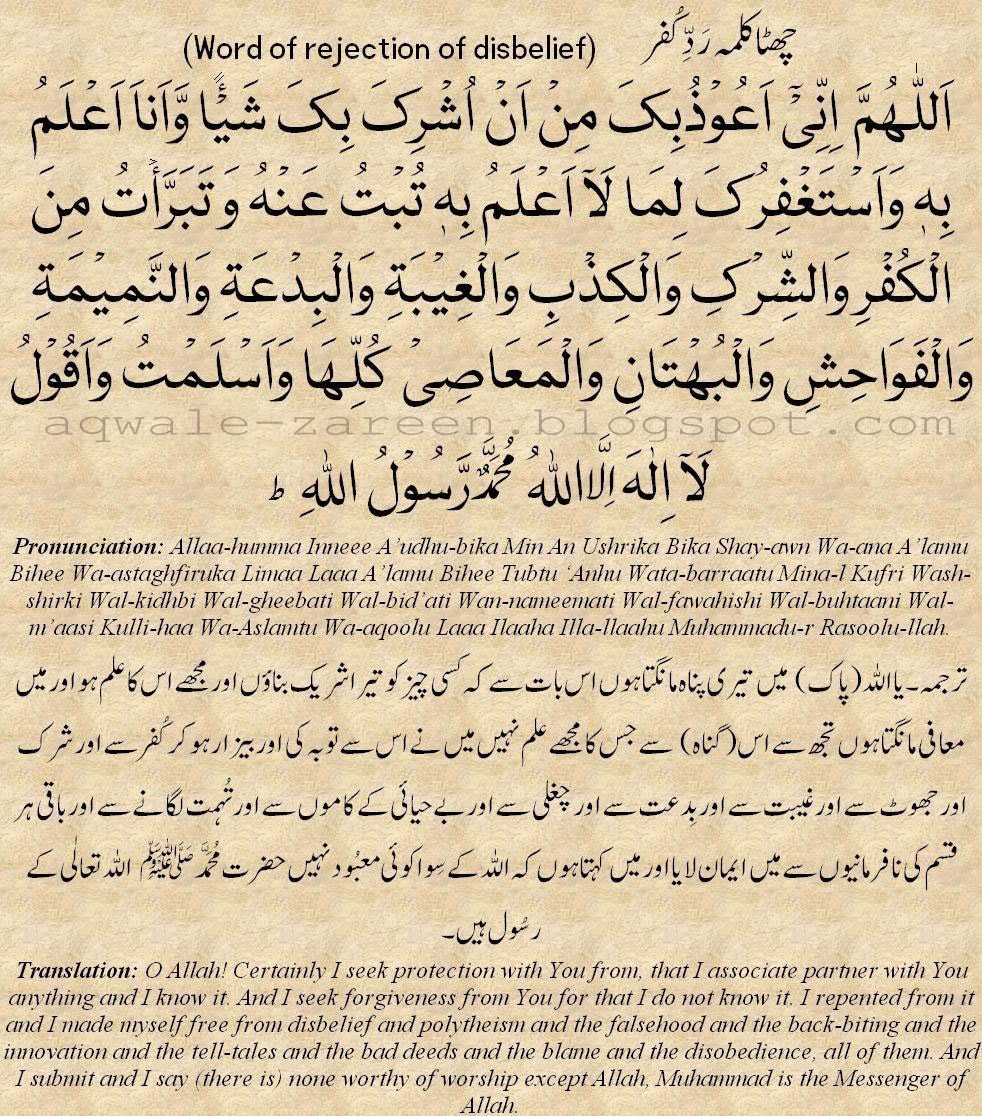 (Word of rejection of disbelief) چھٹا کلمہ رَدِّ کُفر
اَللّٰهُمَّ اِنِّیْۤ اَعُوْذُبِکَ مِنْ اَنْ اُشْرِکَ بِکَ شَیْئًا وَّاَنَا اَعْلَمُ
بِهٖ وَاَسْتَغْفِرُکَ لِمَا لَاۤ اَعْلَمُ بِهٖ تُبْتُ عَنْهُ وَ تَبَرَّأْتُ مِنَ
الْکُفْرِ وَالشِّرْکِ وَالْکِذْبِ وَالْغِیْبَةِ وَالْبِدْعَةِ وَالنَّمِیْمَةِ
وَالْفَوَاحِشِ وَالْبُهْتَانِ وَالْمَعَاصِیْ کُلِّهَا وَاَسْلَمْتُ وَاَقُوْلُ
aqwale-zareen.blogspot.com
لَاۤ اِلٰهَ اِلَّا اللّٰهُ مُحَمَّدٌ رَّسُوْلُ اللّٰهِ ؕ
Pronunciation: Allaa-humma Inneee A’udhu-bika Min An Ushrika Bika Shay-awn Wa-ana A’lamu
Bihee Wa-astaghfiruka Limaa Laaa A’lamu Bihee Tubtu ‘Anhu Wata-barraatu Mina-l Kufri Wash-
shirki Wal-kidhbi Wal-gheebati Wal-bid’ati Wan-nameemati Wal-fawahishi Wal-buhtaani Wal-
m’aasi Kulli-haa Wa-Aslamtu Wa-aqoolu Laaa Ilaaha Illa-llaahu Muhammadu-r Rasoolu-llah.
ترجمہ۔ یا اللہ (پاک) میں تیری پناہ مانگتا ہوں اس بات سے کہ کسی چیز کو تیرا شریک بناؤں اور مجھے اس کا علم ہو اور میں
معافی مانگتا ہوں تجھ سے اس (گناہ) سے جس کا مجھے علم نہیں میں نے اس سے توبہ کی اور بیزار ہو کر کُفر سے اور شرک
اور جھوٹ سے اور غیبت سے اور بدعت سے اور چغلی سے اور بے حیائی کے کاموں سے اور تُہمت لگانے سے اور باقی ہر
قسم کی نافرمانیوں سے میں ایمان لایا اور میں کہتا ہوں کہ اللہ کے سِوا کوئی معبُود نہیں حضرت محمدؐ ﷺ اللہ تعالٰی کے
رسُول ہیں۔
Translation: O Allah! Certainly I seek protection with You from, that I associate partner with You
anything and I know it. And I seek forgiveness from You for that I do not know it. I repented from it
and I made myself free from disbelief and polytheism and the falsehood and the back-biting and the
innovation and the tell-tales and the bad deeds and the blame and the disobedience, all of them. And
I submit and I say (there is) none worthy of worship except Allah, Muhammad is the Messenger of
Allah.